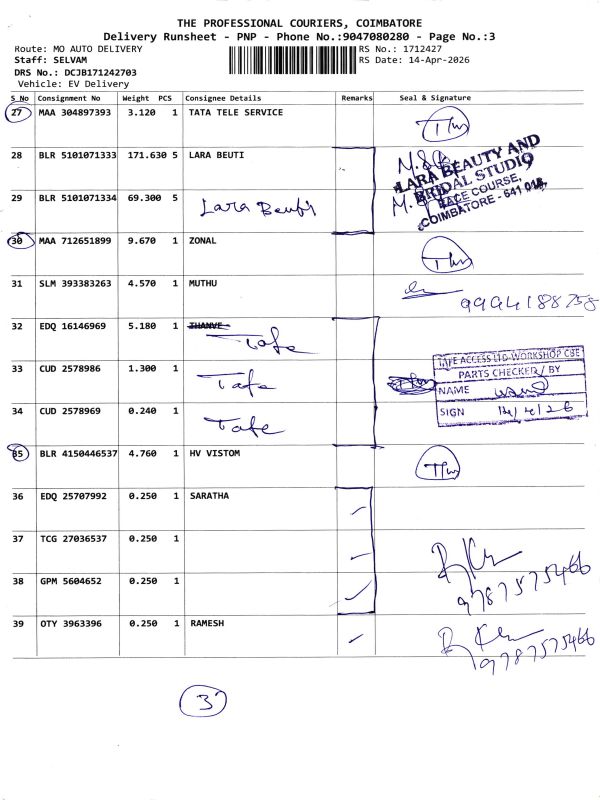 THE PROFESSIONAL COURIERS, COIMBATORE
Delivery Runsheet - PNP - Phone No.:9047080280 - Page No.:3
Route: MO AUTO DELIVERY RS No.: 1712427
Staff: SELVAM RS Date: 14-Apr-2026
DRS No.: DCJB171242703
Vehicle: EV Delivery
S No Consignment No Weight PCS Consignee Details Remarks Seal & Signature
27 MAA 304897393 3.120 1 TATA TELE SERVICE
28 BLR 5101071333 171.630 5 LARA BEUTI
LARA BEAUTY AND
BRIDAL STUDIO
29 BLR 5101071334 69.300 5 Lara Beuti
RACE COURSE,
COIMBATORE - 641 018.
30 MAA 712651899 9.670 1 ZONAL
31 SLM 393383263 4.570 1 MUTHU
9994188758
32 EDQ 16146969 5.180 1 THANVE Tafe
33 CUD 2578986 1.300 1 Tafe
TAFE ACCESS LTD-WORKSHOP CBE
PARTS CHECKED / BY
NAME
SIGN 14/4/26
34 CUD 2578969 0.240 1 Tafe
35 BLR 4150446537 4.760 1 HV VISTOM
36 EDQ 25707992 0.250 1 SARATHA
37 TCG 27036537 0.250 1
38 GPM 5604652 0.250 1
9787575466
39 OTY 3963396 0.250 1 RAMESH
9787575466
3